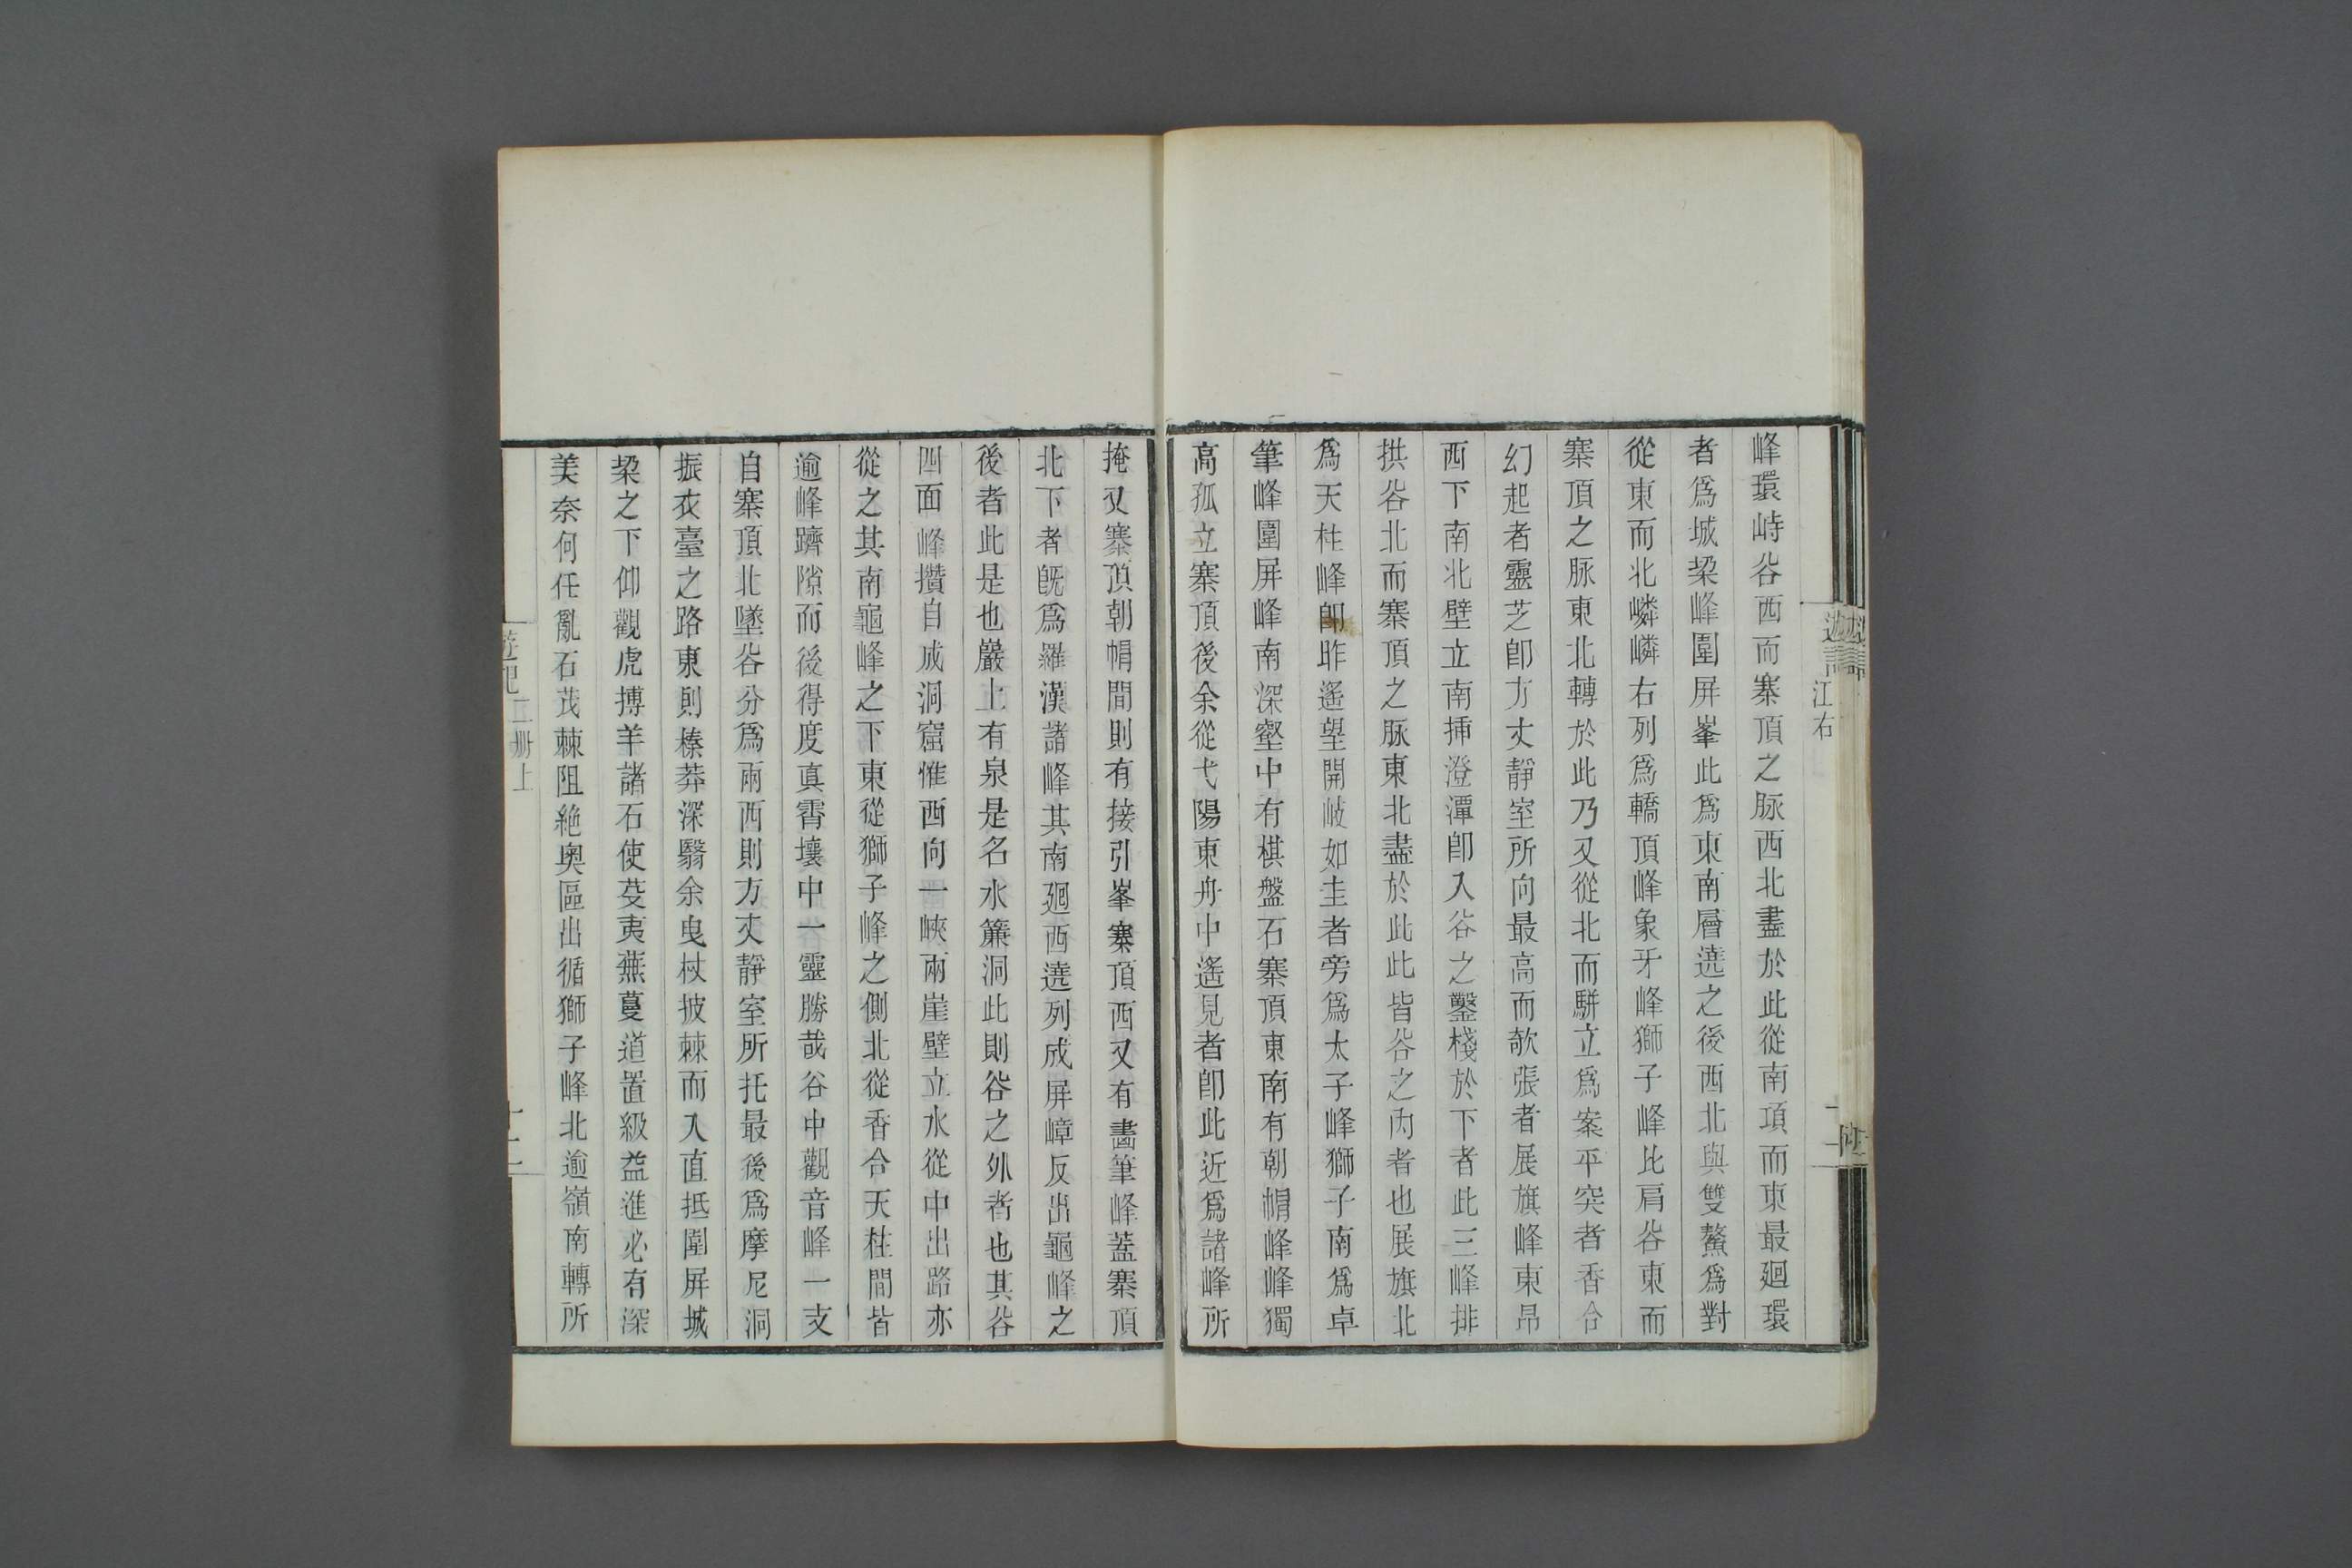 江右
峰環峙谷西而寨頂之脉西北盡於此從南項而東最廻環
者爲城梁峰圍屏峯此爲東南層遶之後西北與雙鰲爲對
從東而北嶙嶙右列爲轎頂峰象牙峰獅子峰比肩谷東而
寨頂之脉東北轉於此乃又從北而駢立爲案平突者香合
幻起者靈芝卽方丈靜室所向最高而欹張者展旗峰東昂
西下南北壁立南揷澄潭卽入谷之鑿棧於下者此三峰排
拱谷北而寨頂之脉東北盡於此此皆谷之內者也展旗北
爲天柱峰卽昨遙望開岐如圭者旁爲太子峰獅子南爲卓
筆峰圍屏峰南深壑中有棋盤石寨頂東南有朝㡌峰峰獨
高孤立寨頂後余從弋陽東舟中遙見者卽此近爲諸峰所
掩又寨頂朝㡌間則有接引峯寨頂西又有畵筆峰蓋寨頂
北下者旣爲羅漢諸峰其南廻西遶列成屏嶂反出龜峰之
後者此是也巖上有泉是名水簾洞此則谷之外者也其谷
四面峰攢自成洞窟惟西向一峽兩崖壁立水從中出路亦
從之其南龜峰之下東從獅子峰之側北從香合天柱間皆
逾峰躋隙而後得度眞霄壤中一靈勝哉谷中觀音峰一支
自寨頂北墜谷分爲兩西則方丈靜室所托最後爲摩尼洞
振衣臺之路東則榛莽深翳余曳杖披棘而入直抵圍屏城
梁之下仰觀虎搏羊諸石使芟夷蕪蔓道置級益進必有深
美奈何任亂石茂棘阻絶奧區出循獅子峰北逾嶺南轉所
遊記二册上